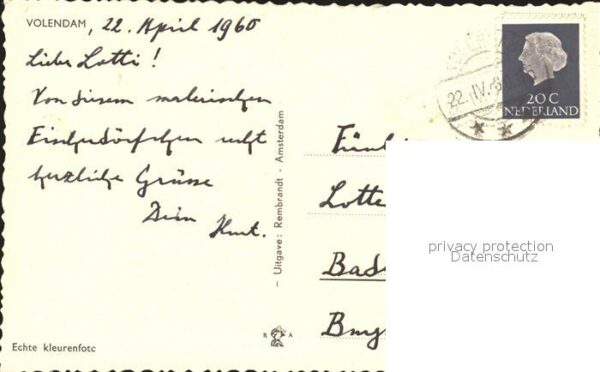 VOLENDAM, 22. April 1960
Liebe Lotti!
Von diesem malerischen
herzliche Grüsse
Dein
Echte kleurenfoto
Uitgave: Rembrandt - Amsterdam
R A
22. IV.
20 C
NEDERLAND
Lotte
Bad
privacy protection
Datenschutz